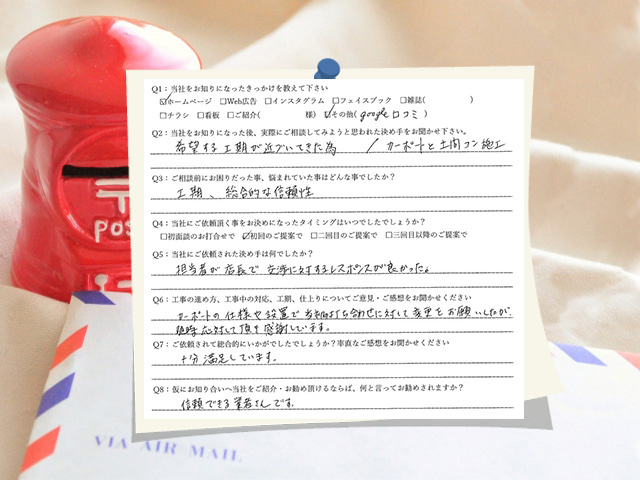 Q1：当社をお知りになったきっかけを教えて下さい
☑ホームページ　□Web広告　□インスタグラム　□フェイスブック　□雑誌(　　　　　)
□チラシ　□看板　□ご紹介(　　　　　様)　☑その他(google口コミ)
Q2：当社をお知りになった後、実際にご相談してみようと思われた決め手をお聞かせ下さい。
希望する工期が近づいてきた為　/ カーポートと土間コン施工
Q3：ご相談前にお困りだった事、悩まれていた事はどんな事でしたか？
工期、総合的な信頼性
Q4：当社にご依頼頂く事をお決めになったタイミングはいつでしたでしょうか？
□初面談のお打合せで　☑初回のご提案で　□二回目のご提案で　□三回目以降のご提案で
Q5：当社に依頼された決め手は何でしたか？
担当者が店長で 交渉に対するレスポンスが良かった。
Q6：工事の進め方、工事中の対応、工期、仕上りについてご意見・ご感想をお聞かせください
カーポートの仕様や設置で当初打ち合わせに対して変更をお願いしたが、
随時応対して頂き感謝しています。
Q7：ご依頼されて総合的にいかがでしたでしょうか？率直なご感想をお聞かせください
十分満足しています。
Q8：仮にお知り合いへ当社をご紹介・お勧め頂けるならば、何と言ってお勧めされますか？
信頼できる業者さんです。
〒
POS
VIA AIR MAIL